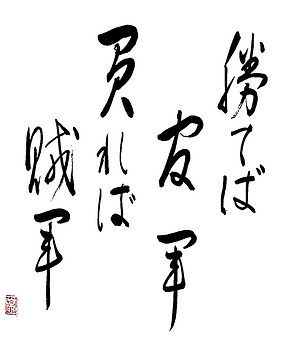 勝てば
官軍
負れば
賊軍